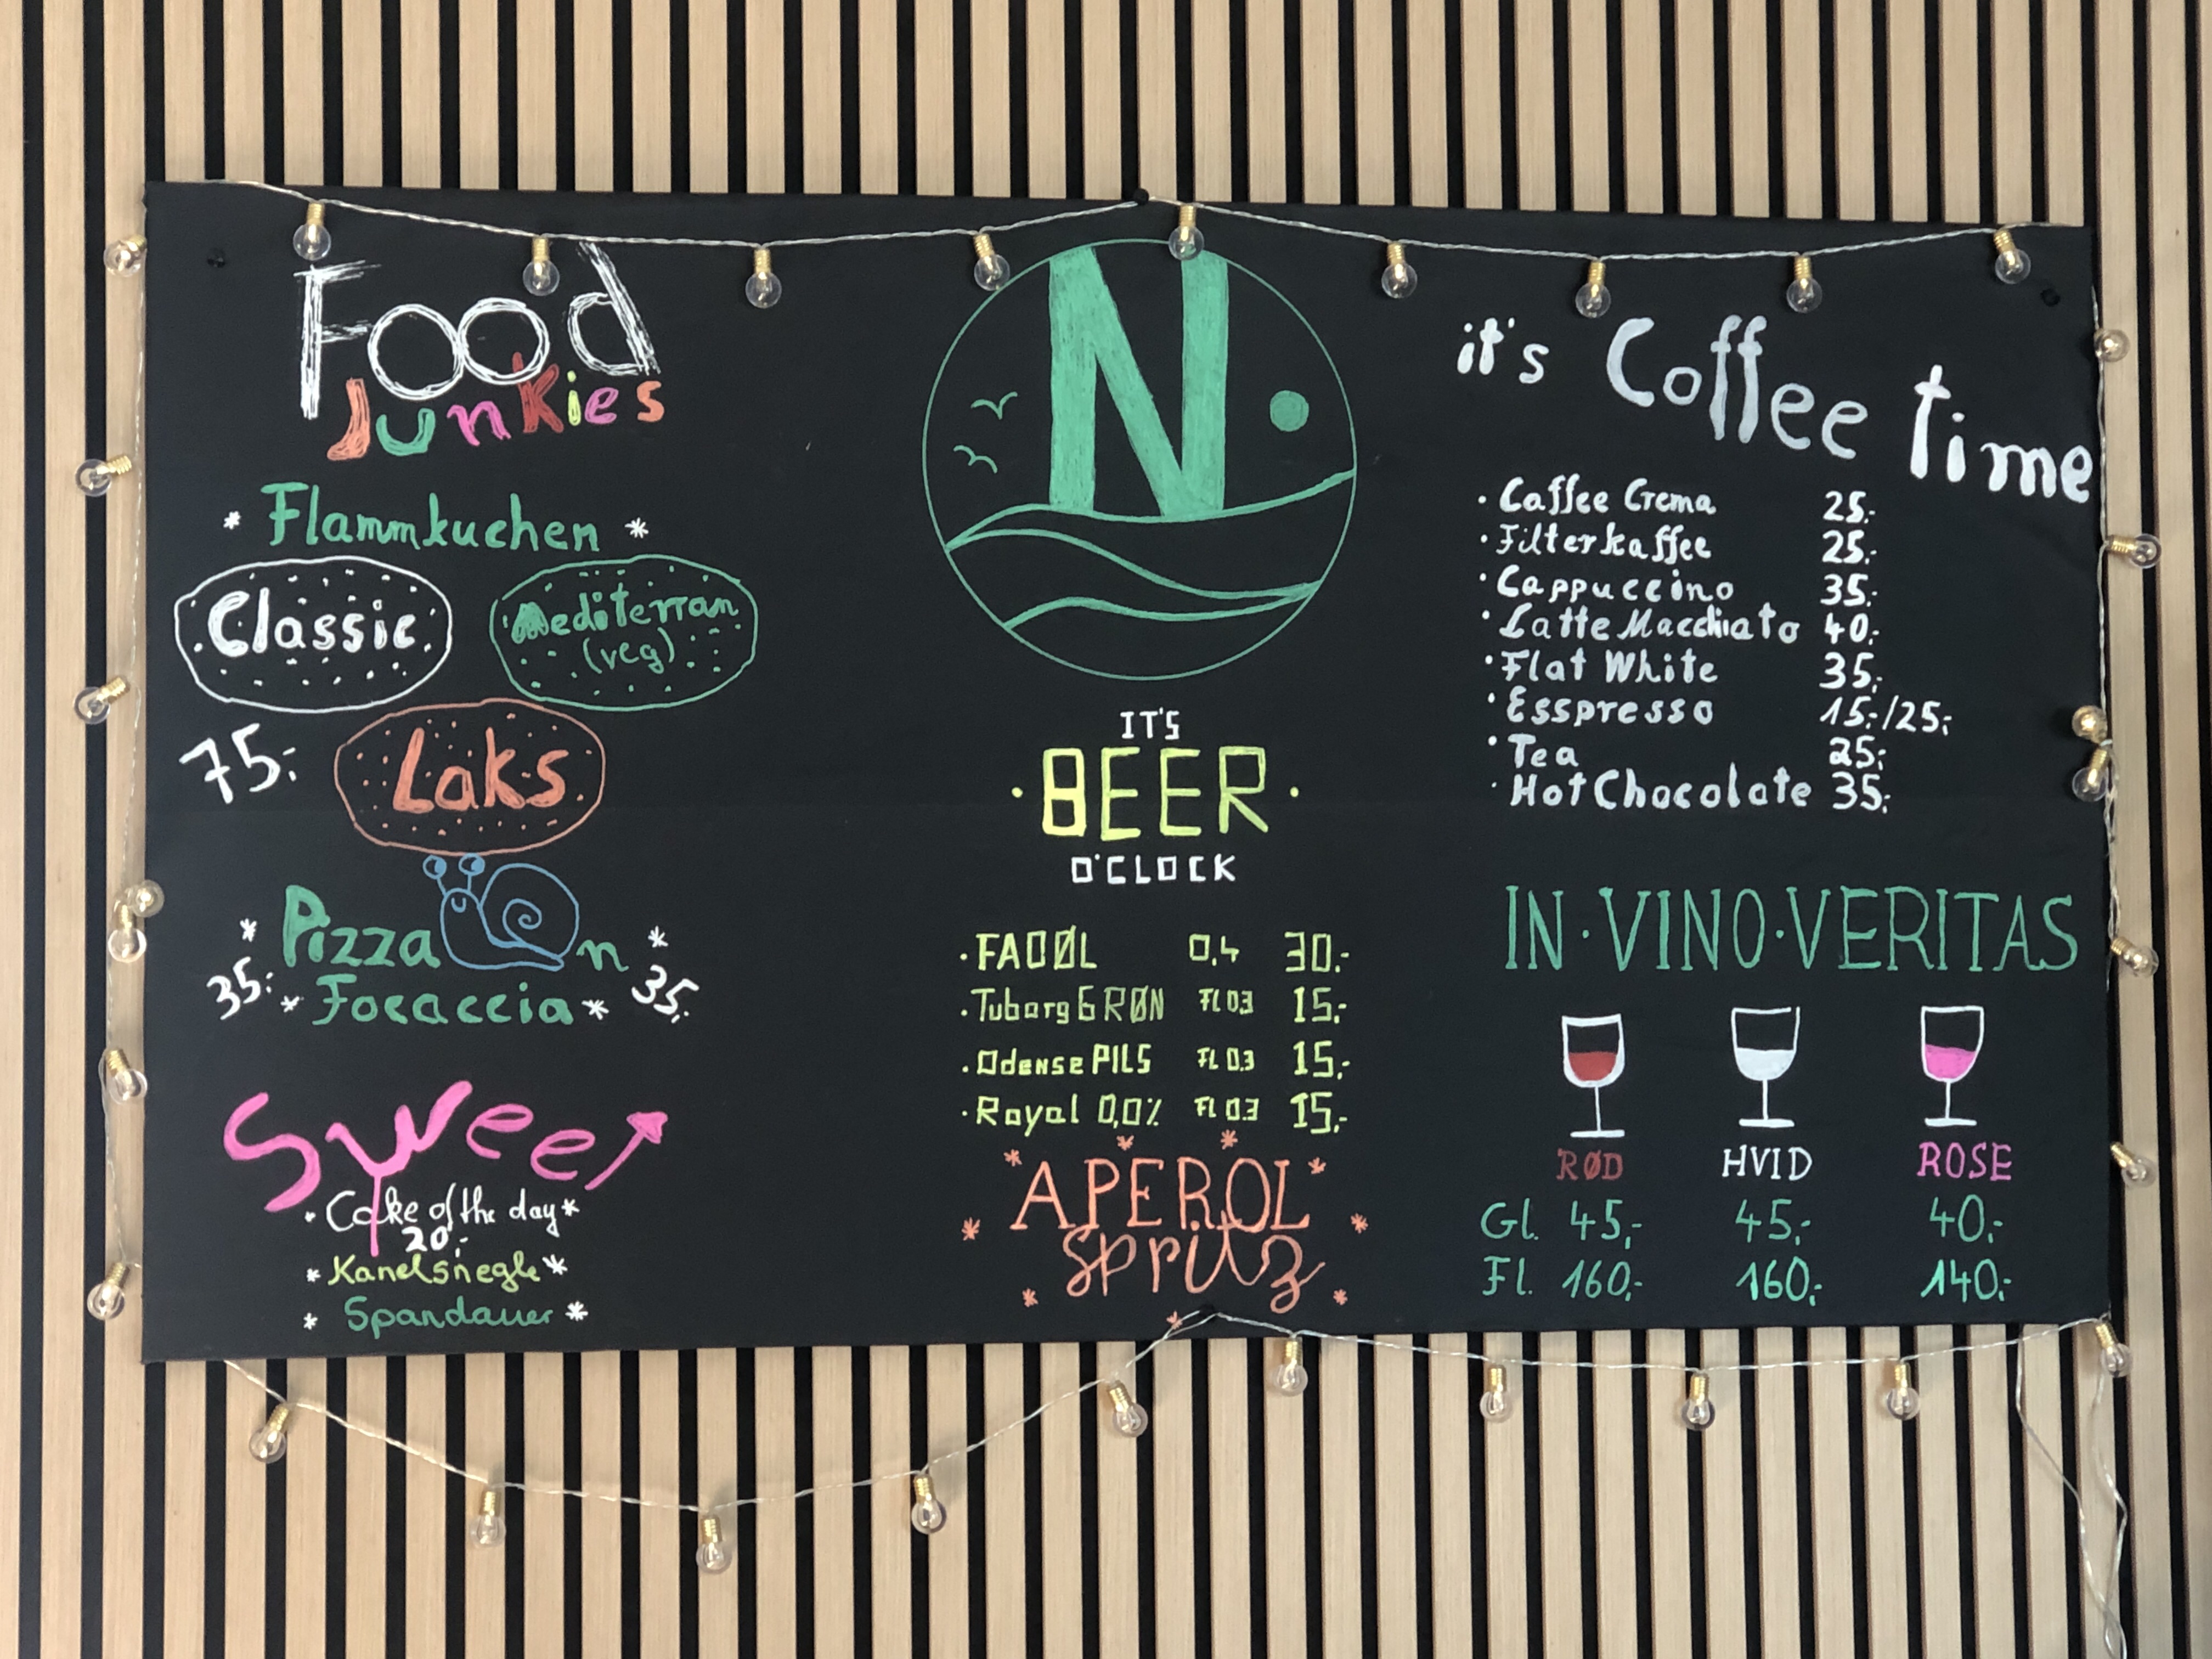 Food
Junkies
* Flammkuchen *
Classic
Mediterran
(veg)
75.-
Laks
* Pizza n *
35.- * Focaccia * 35.-
Sweet
· Cake of the day *
20.-
* Kanelsnegle *
* Spandauer *
N
IT'S
· BEER ·
O'CLOCK
· FADØL 0,4 30.-
· Tuborg GRØN FL 0.3 15.-
· Odense PILS FL 0.3 15.-
· Royal 0,0% FL 0.3 15.-
APEROL
Spritz
it's Coffee time
· Caffee Crema 25.-
· Filterkaffee 25.-
· Cappuccino 35.-
· Latte Macchiato 40.-
· Flat White 35.-
· Esspresso 15.-/25.-
· Tea 25.-
· Hot Chocolate 35.-
IN·VINO·VERITAS
RØD HVID ROSE
Gl. 45,- 45,- 40.-
Fl. 160,- 160,- 140.-